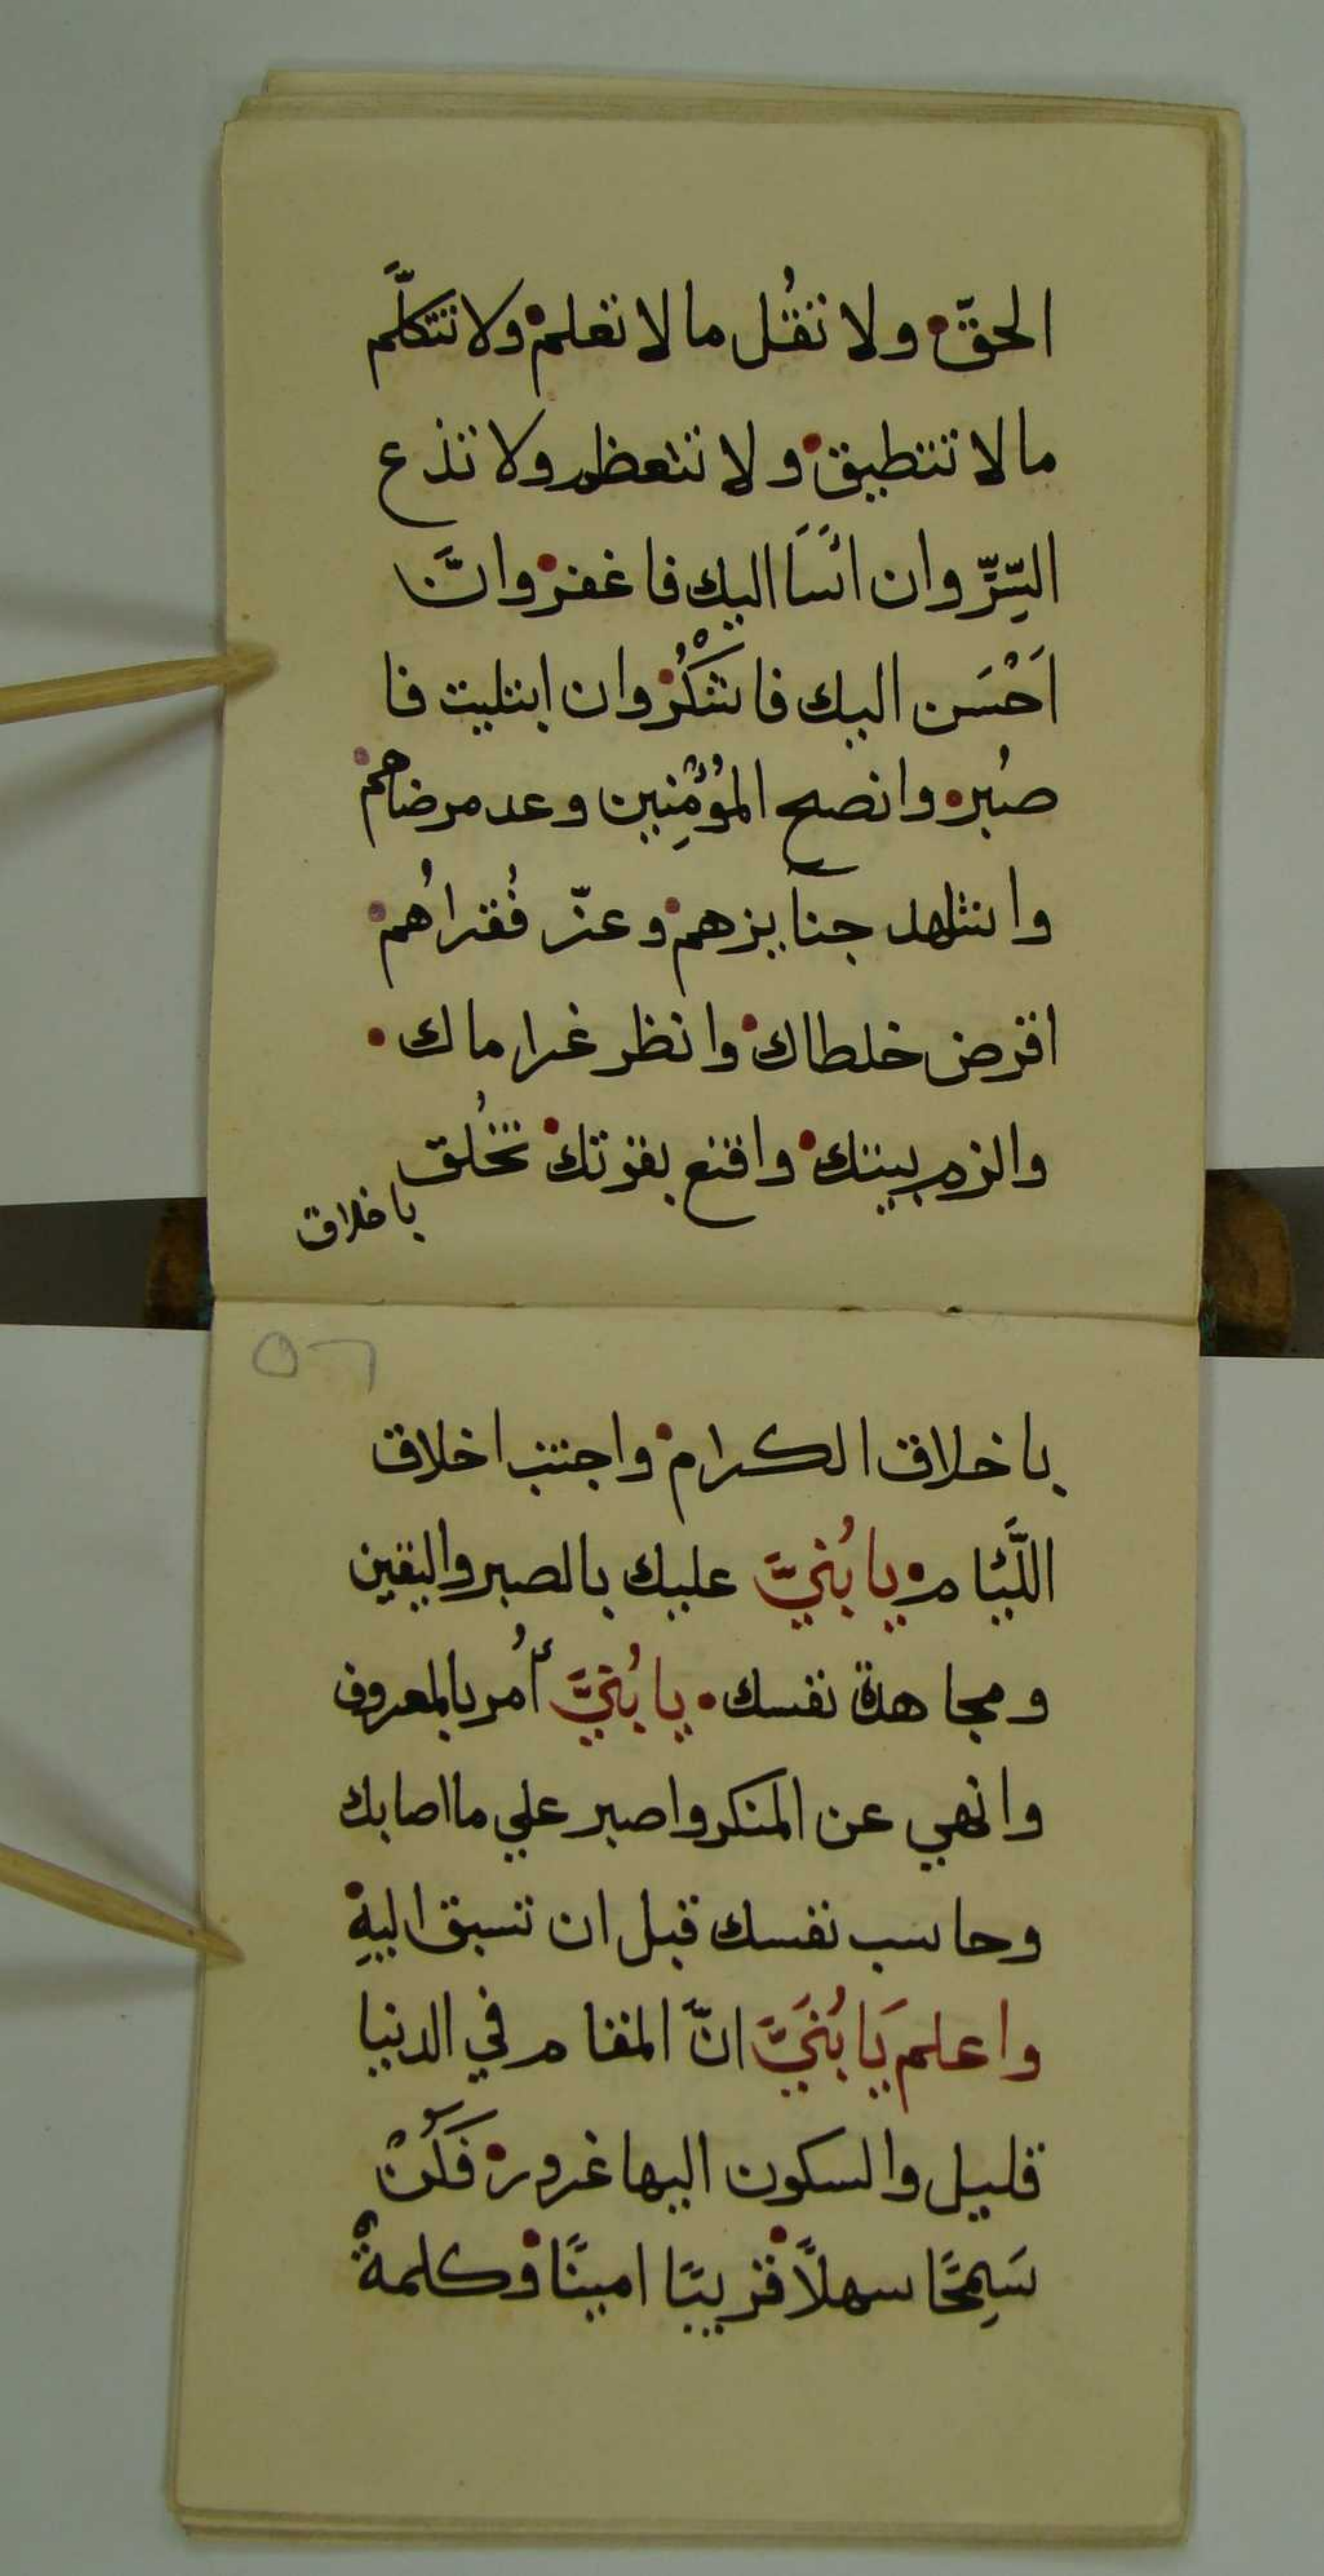 الحقّ • ولا تقُل ما لا تعلم • ولا تتكلَّم
ما لا تتطيق • ولا تتعظم ولا تذع
السِّرّ وان اسَا اليك فاغفر • وان
اَحْسَن اليك فاشْكُر • وان ابتليت فا
صبُر • وانصح المُؤْمِنين وعد مرضاهم •
واشهد جنايزهم • وعزّ فُقراهُم •
اقرض خلطاك • وانظر غراماك •
والزم بيتك • واقنع بقوتك • تخُلق
باخلاق
٥٦
باخلاق الكرام • واجتنب اخلاق
اللَّئام • يا بُنيَّ عليك بالصبر واليقين
ومجاهدة نفسك • يا بُنيَّ أُمر بالمعروف
وانهي عن المنكر واصبر علي ما اصابك
وحاسب نفسك قبل ان تسبق اليهِ •
واعلم يَا بُنَيَّ انّ المقام في الدنيا
قليل والسكون اليها غرور • فَكُنْ
سَمِحًا سهلًا • قريبًا امينًا • وكلمةٌ